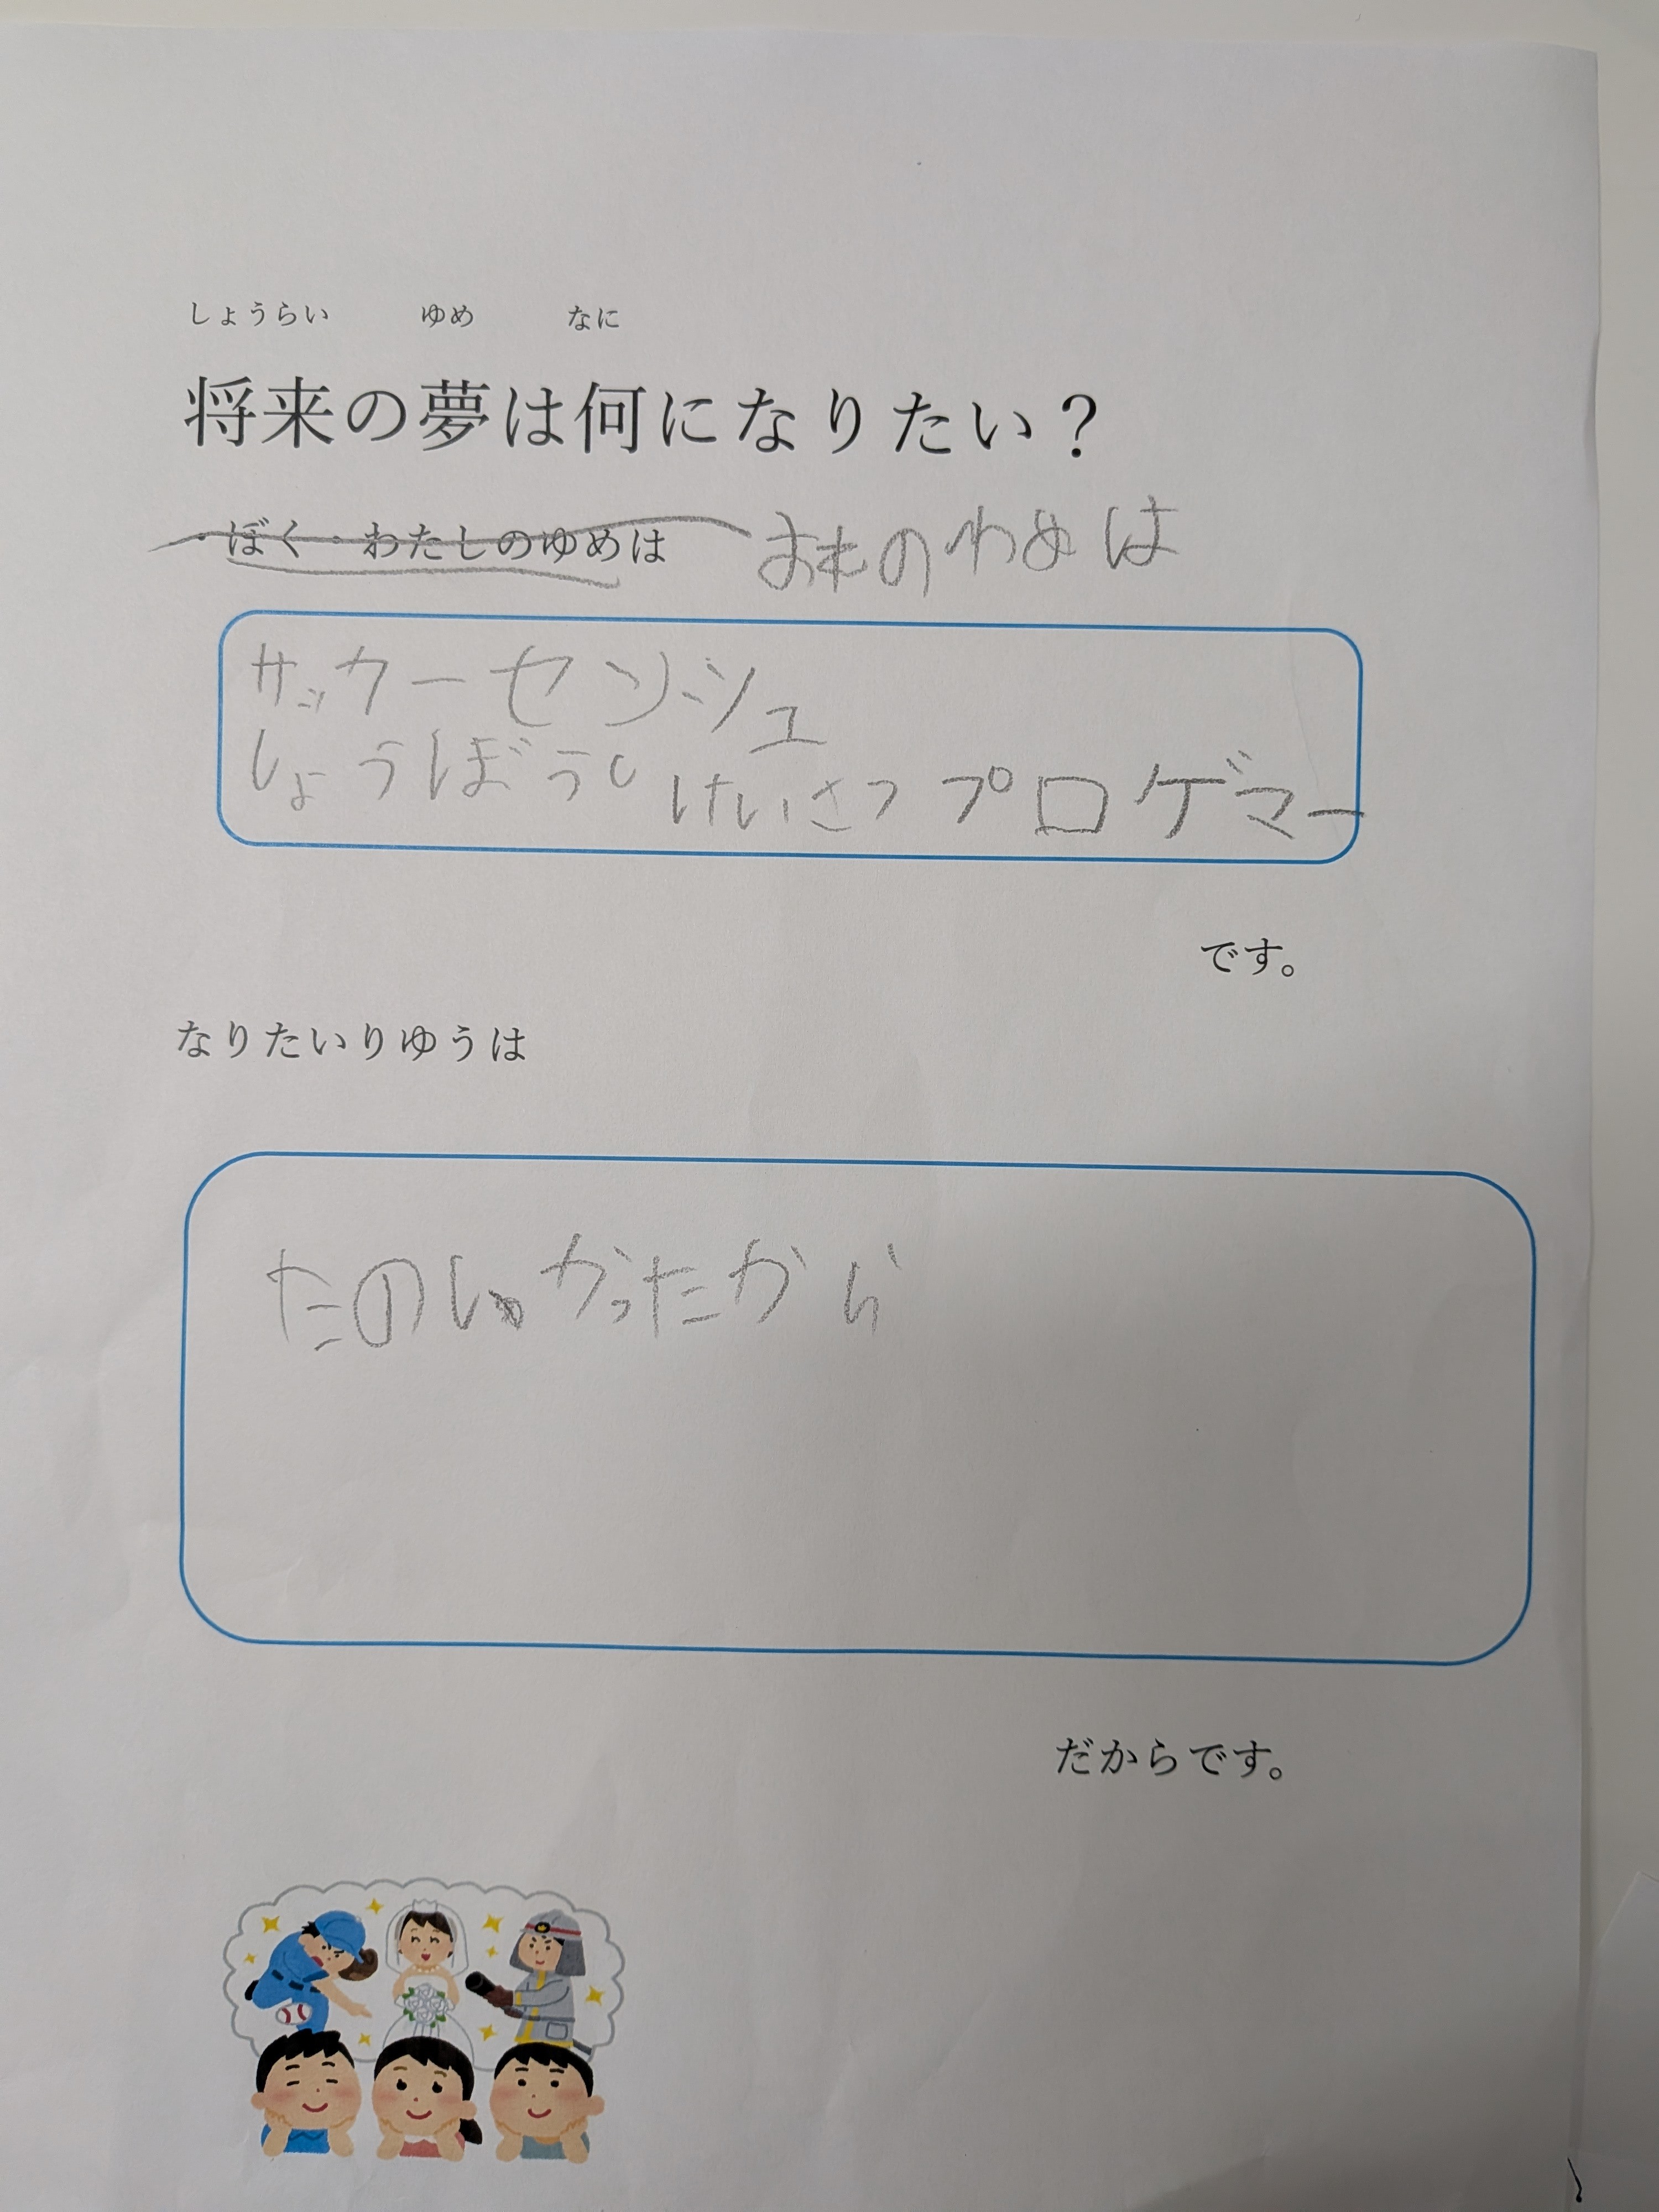 しょうらい ゆめ なに
将来の夢は何になりたい？
・ぼく・わたしのゆめは おれのゆめは
サッカーセンシュ
しょうぼうし けいさつ プロゲマー
です。
なりたいりゆうは
たのしかったから
だからです。